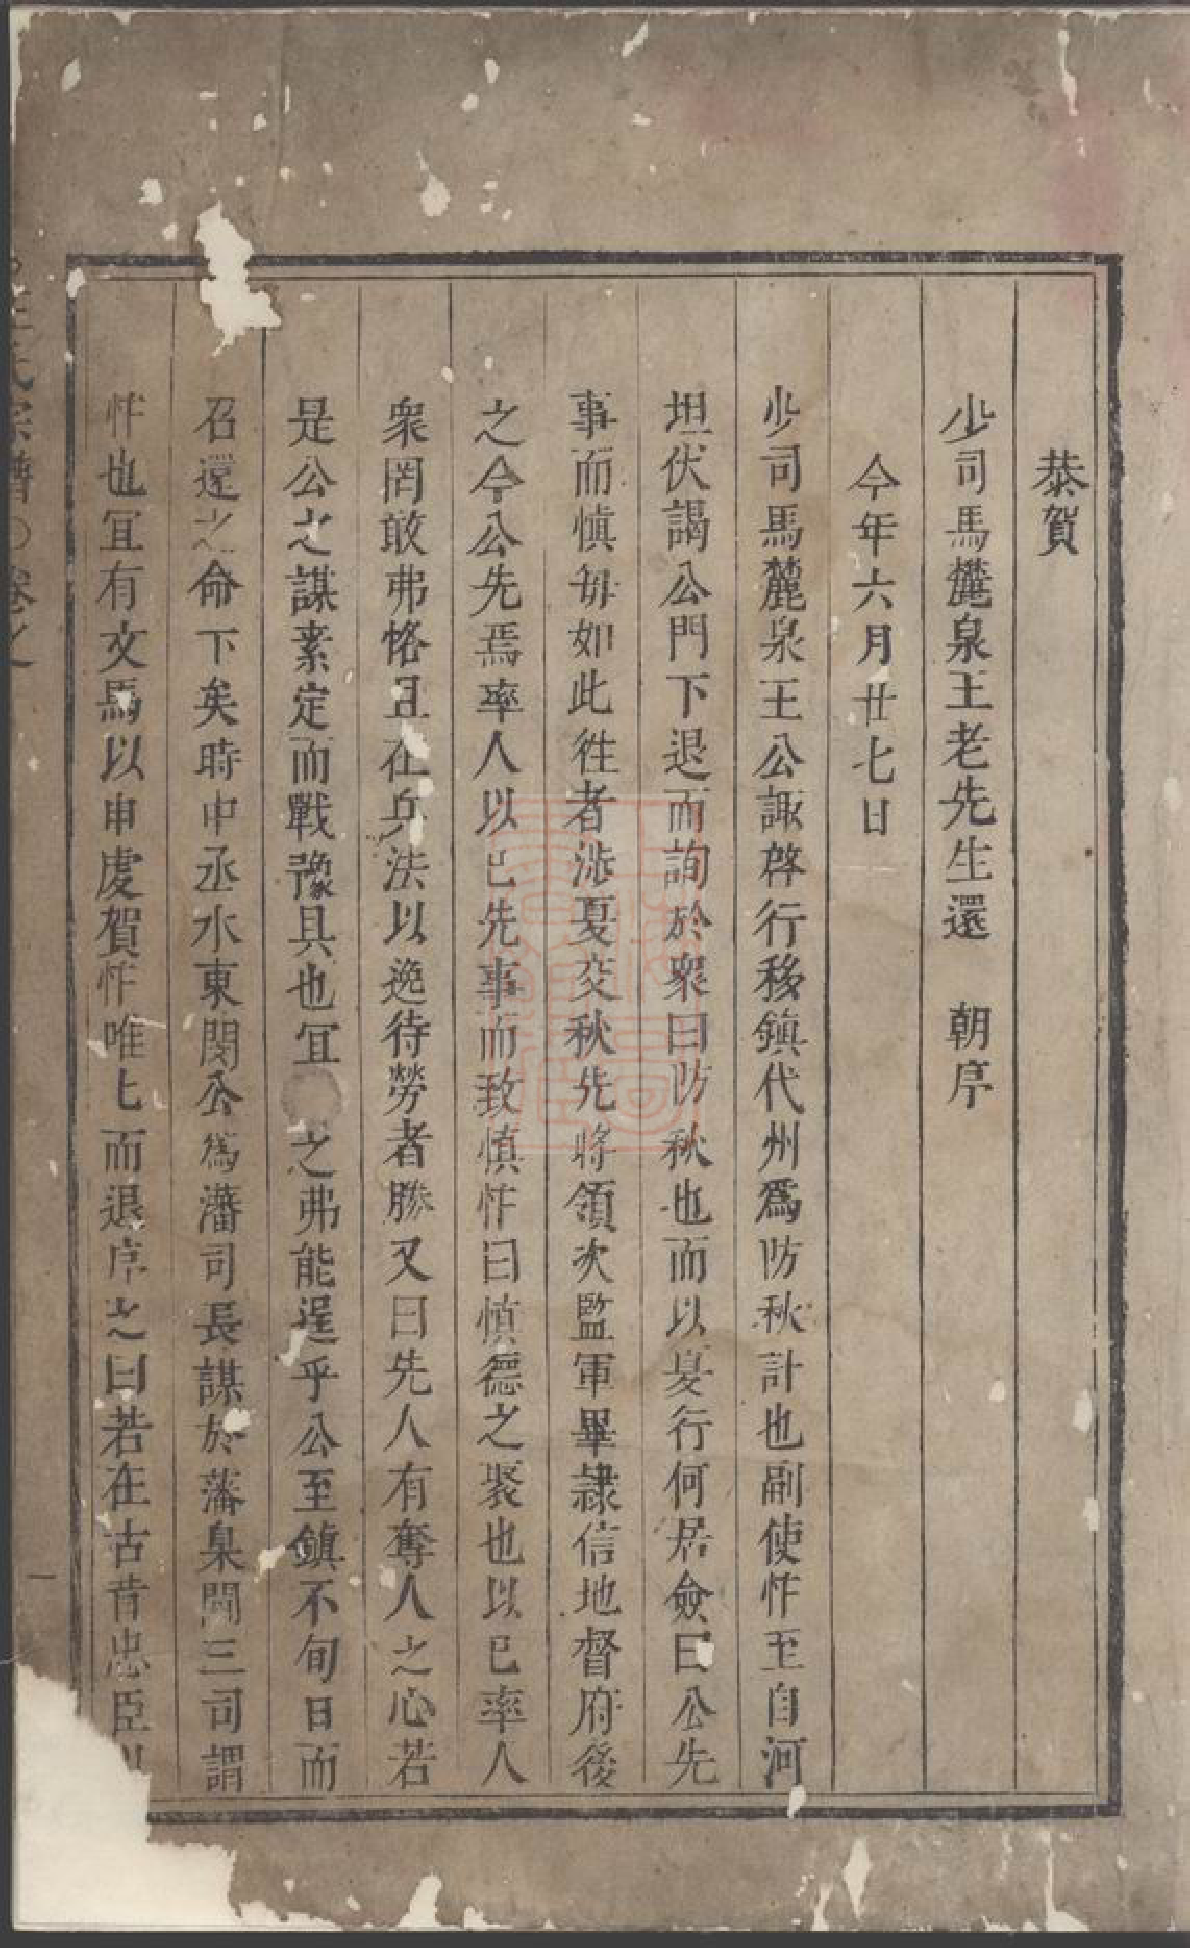 恭賀
少司馬麓泉王老先生還　朝序
今年六月廿七日
少司馬麓泉王公諏啓行移鎮代州爲防秋計也副使忭至自河
坦伏謁公門下退而詢於衆曰防秋也而以夏行何居僉曰公先
事而愼毎如此徃者涉夏交秋先將領次監軍畢隷信地督府後
之今公先焉率人以己先事而致慎忭曰慎德之聚也以已率人
衆罔敢弗恪且在兵法以逸待勞者勝又曰先人有奪人之心若
是公之謀素定而戰豫具也冝之弗能逞乎公至鎮不旬日而
召還之命下矣時中丞水東閔公爲藩司長謀於藩臬閫三司謂
忭也冝有文焉以申慶賀忭唯匕而退序之曰若在古昔忠臣
王氏宗譜○卷之
一